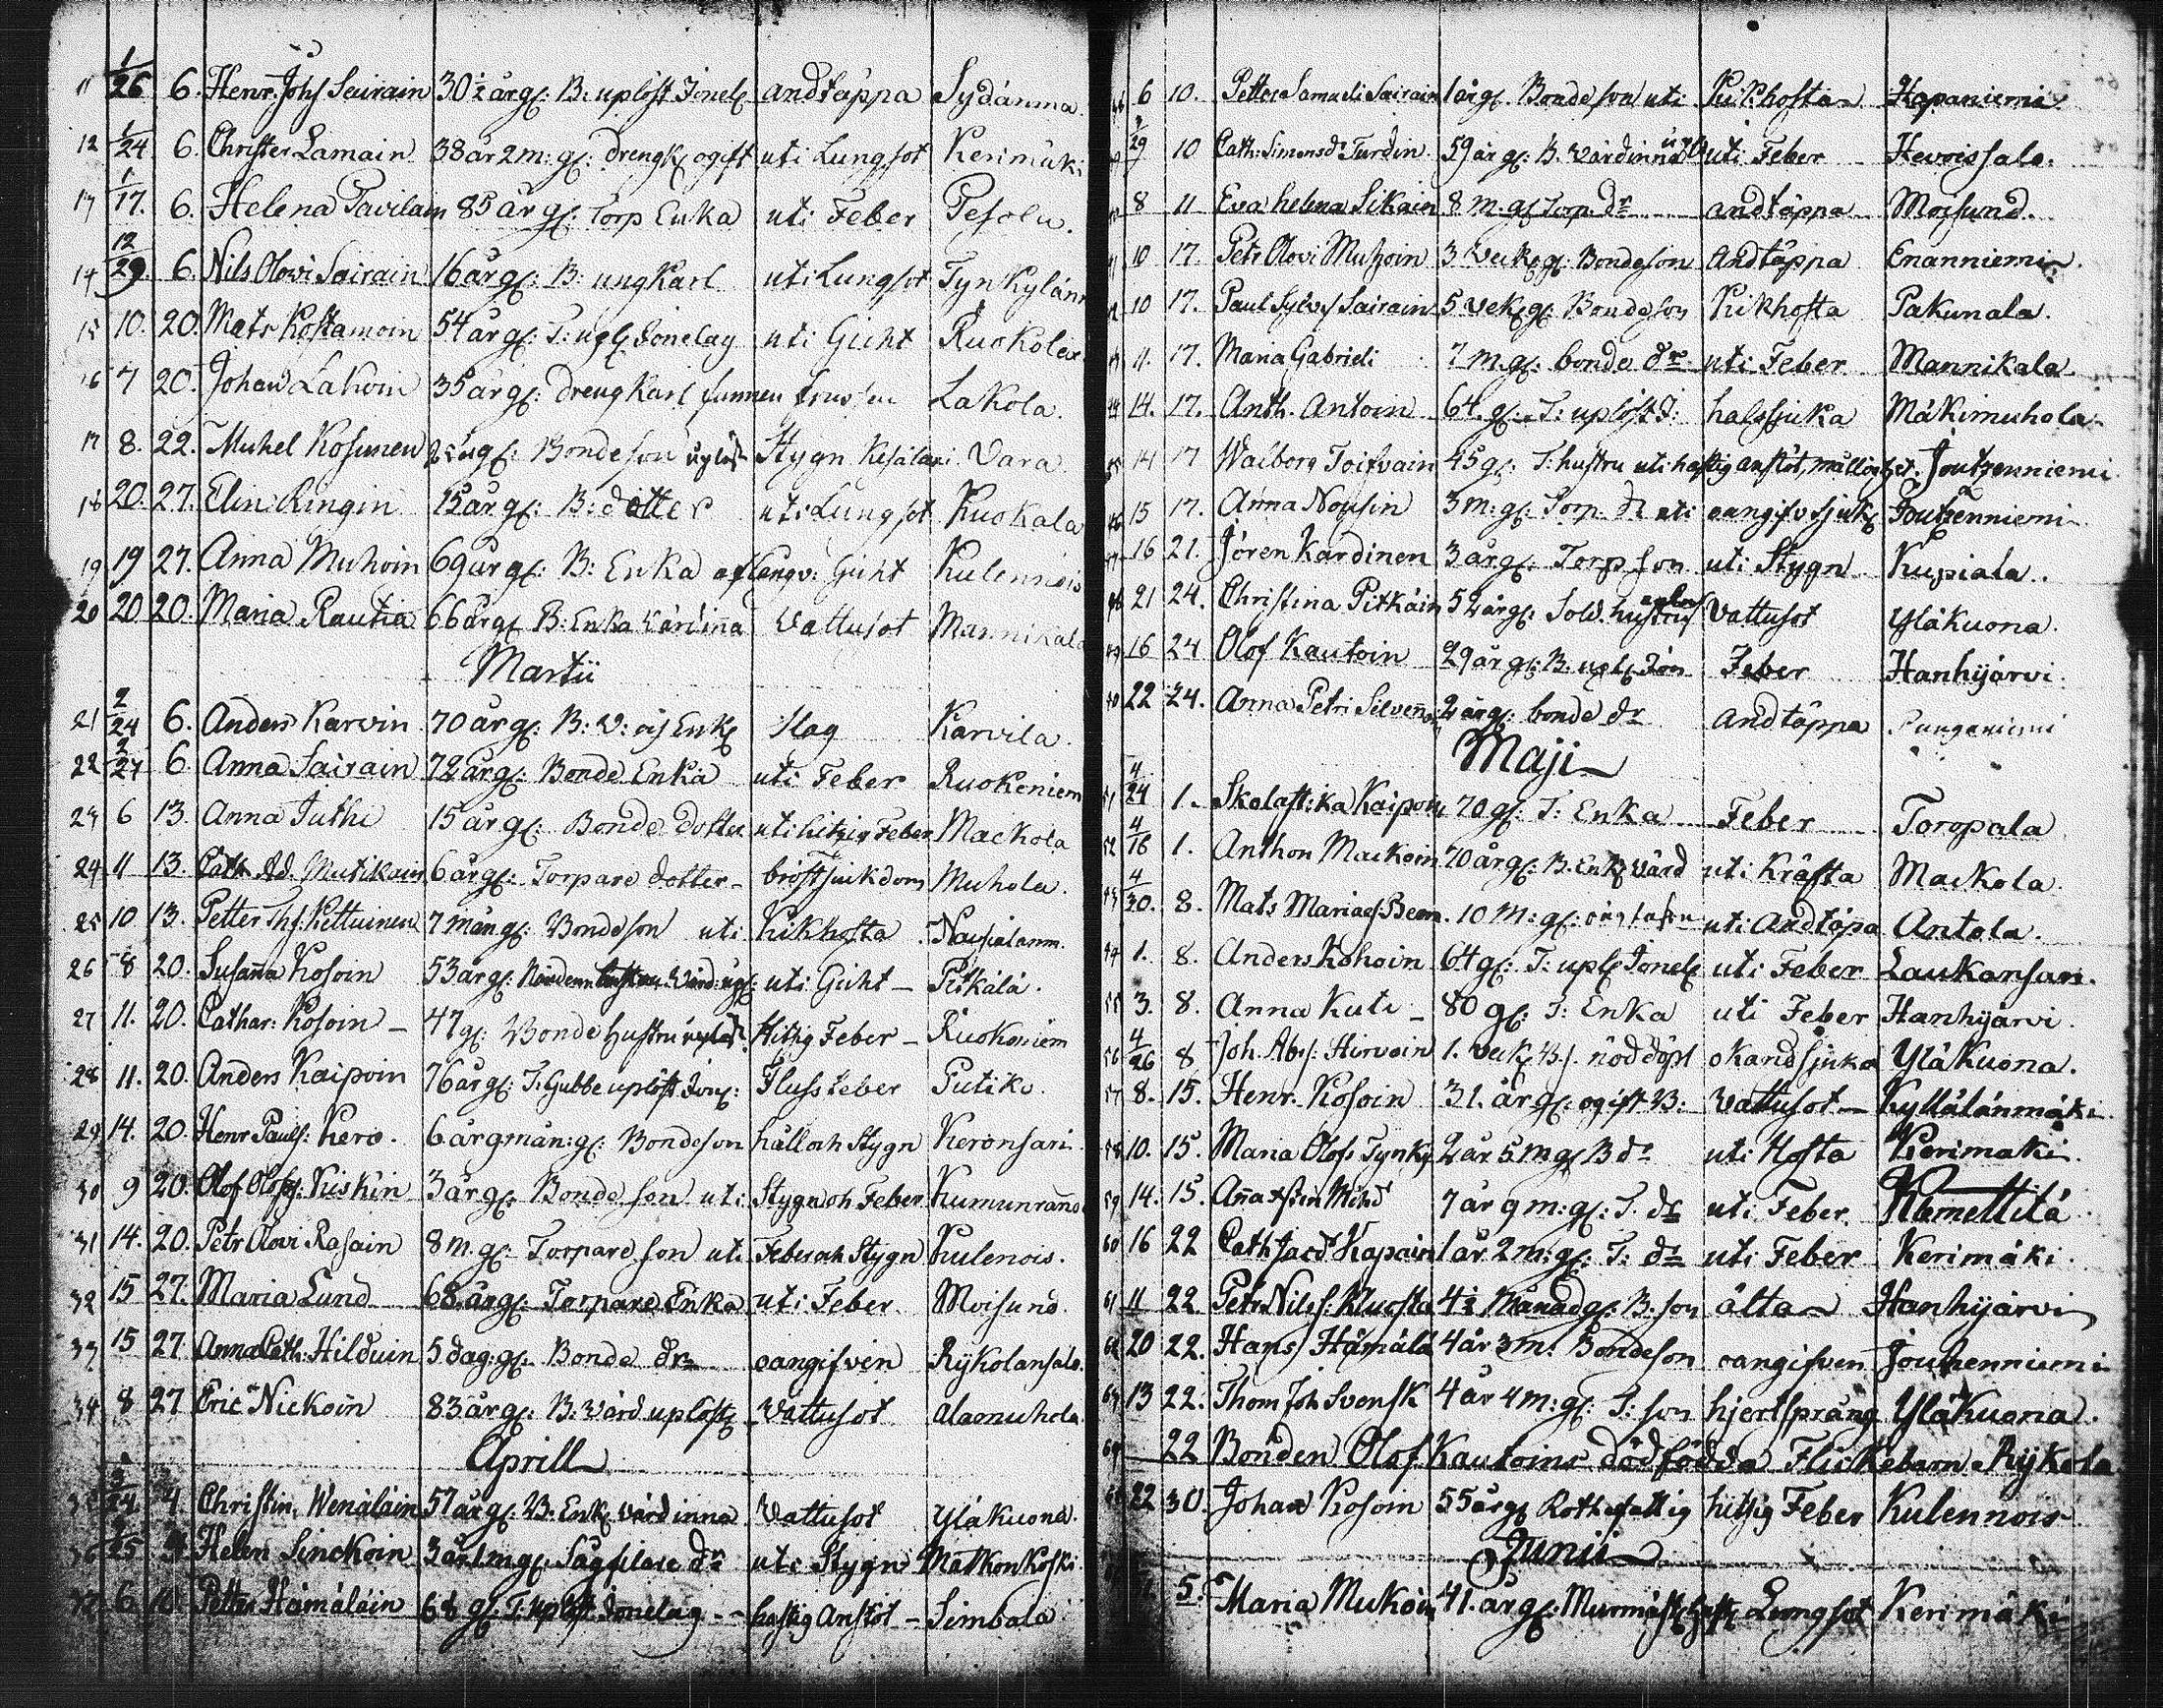 11 1/26 6. Henr. Johs Sairain 30½ årg: B: uplöst Ionel andtäppa Sydänma
12 1/24 6. Christer Lamain 38 år 2 m: g: drengk ogift uti Lungsot Kerimäki
13 1/17. 6. Helena Pavilain 85 år g: Torp Enka uti Feber Pesolu.
14 12/29. 6. Nils Olowi Sairain 16 år g: B: ungkarl uti Lungsot Tynkylänm
15 10. 20. Mats Kostamoin 54 år g: T: upl Ionelag uti Gicht Ruokolax
16 7 20. Johan Lakoin 35 år g: drengkarl funnen frusen Lakola.
17 8. 22. Mickel Kosunen g: Bondeson Stygn Vara
18 20. 27. Elin Ringin 15 år g: B: dotter uti Lungsot Kuokala
19 19 27. Anna Muhoin 69 år g: B: Enka af Gicht Kulennois
20 20 20. Maria Rautia 66 årg B: Enka Värdinna Vattusot Mannikala
Martii
21 2/24 6. Anders Karvin 70 år g: B: V: oc Enk Slag Karvila.
22 2/27 6 Anna Sairain 72 årg: Bonde Enka uti Feber Ruokoniem
23 6 13. Anna Juthi 15 år g: Bonde dotter uti hitzig Feber Mackola
24 11 13. Cath Ad. Mutikain 6 årg: Torpare dotter bröstsiukdom Muhola.
25 10 13. Petter Ths: Kettuinen 7 mån g: Bondeson uti Kikhosta
26 8 20. Susaña Kosoin 53 år g: uti Gicht Pitkälä.
27 11. 20. Cathar: Kosoin 47 g: Bonde hustru uplöst hitzig Feber Ruokoniem
28 11. 20. Anders Kaipoin 76 år g: T: Gubbe uplöst Ion: Flussfeber Putiko.
29 14. 20. Henr Pauls: Kero. 6 år mån: g: Bondeson håll och Stygn Keronsari
30 9 20. Olof Olofs: Kiskin 3 år g: Bondeson uti Stygn och Feber Kumunrann
31 14. 20. Petr Olovi Rasain 8 m. g: Torpare son uti Feber och Stygn Kulenois.
32 15 27. Maria Lund 68 årg: Torpare Enka uti Feber Moisund.
33 15 27. Anna Cath: Hilduin 5 dag: g: Bonde dr oangifven Rykolansalo.
34 8 27 Eric Nickoin 83 år g: B: Värd uplöst Vattusot Alaomuhola
Aprill
35 3/24. 4. Christin, Wenäläin 57 år g: B: Enk. Värdinna Vattusot Yläkuona.
36 3/25 4 Helen Sinckoin 3 år 1 m g: Sågfilare dr uti Stygn Matkonkoski
37 6 10. Petter Hämäläin 68 g: T: uplöst Ionelag hastig Anstöt Simbala
6 10. Petter Samueli Sairain 1 årg. Bondeson uti Kikhosta Hapaniemi.
3/29 10 Cath: Simonsdr Turdin 59 år g: B. Värdinna uti Feber Hevoissalo.
8 11 Eva Helena Sikain 8 m. g: Torp. dr andtäppa Moisund.
10 17. Petr Olovi Muhoin 3 Veck g: Bondeson Andtäppa Enanniemi.
10 17. Paul Sylvs Sairain 5 vek: g: Bondeson Kikhosta Pakunala.
11. 17. Maria Gabrieli 7 m. g: bonde dr uti Feber Mannikala
14. 17. Anth. Antoin 64. g: T: uplöst I: halssjuka Mäkimuhola
14 17 Walborg Toifvain 45 g: T: hustru uti hastig anstöt, mållöshet. Joutzenniemi
15 17. Anna Nousin 3 m: g: Torp. dr uti oangifv sjuk Joutzenniemi
16 21. Jören Kardinen 3 årg: Torp son uti Stygn Kupiala.
21 24. Christina Pitkäin 52 årg: Sold. hustru uplöst Vattusot Yläkuona.
16 24 Olof Kautoin 29 år g: B. upl: Ion Feber Hanhijärvi
22 24. Anna Petri Silveno 2 årg: bonde dr Andtäppa Punganiemi
Maji
51 4/24 1. Skolastika Kaipoin 70 g: T: Enka Feber Toropala
52 4/16 1. Anthon Mackoin 70 år g: B. Enk Värd uti Kräfta Mackola.
53 4/30. 8. Mats Mariaes: Beem. 10 m: g: uti Andtäpa Antola.
54 1. 8. Anders Kohoin 64 g: T: upl: Ionel uti Feber Laukansari.
55 3. 8. Anna Kuti 80 g: T: Enka uti Feber Hanhijärvi.
56 4/26 8 Joh. Abrs: Hirvoin 1. veck B s. nöddöpt okänd sjuka Yläkuona.
57 8. 15. Henr. Kosoin 31. år g: ogift B: Vattusot Kyllälänmäki
58 10. 15. Maria Olofs Tynky 2 år 5 m g: B dr uti Hosta Kerimäki.
59 14. 15. Aña Mihd 7 år 9 m: g: T. dr uti Feber Kamettilä.
60 16 22 Cath Jacdr Kapain 1 år 2 m: g: T: dr uti Feber Kerimäki.
61 11 22. Petr Nilss: Kluosta 4½ Månad g: B: son älta Hanhijärvi
62 20 22. Hans Hämälä 4 år 3 m: Bondeson oangifven Joutzenniemi
63 13 22. Thom Joh Svensk 4 år 4 m: g: T: son hjertspräng Yläkuona.
64 22 Bonden Olof Kautoins dödfödda Flickebarn Rykola
65 22 30. Johan Kosoin 55 årg Rothefattig hitzig Feber Kulennois
Junii
5. Maria Mukoin 41. år g: Lungsot Kerimäki